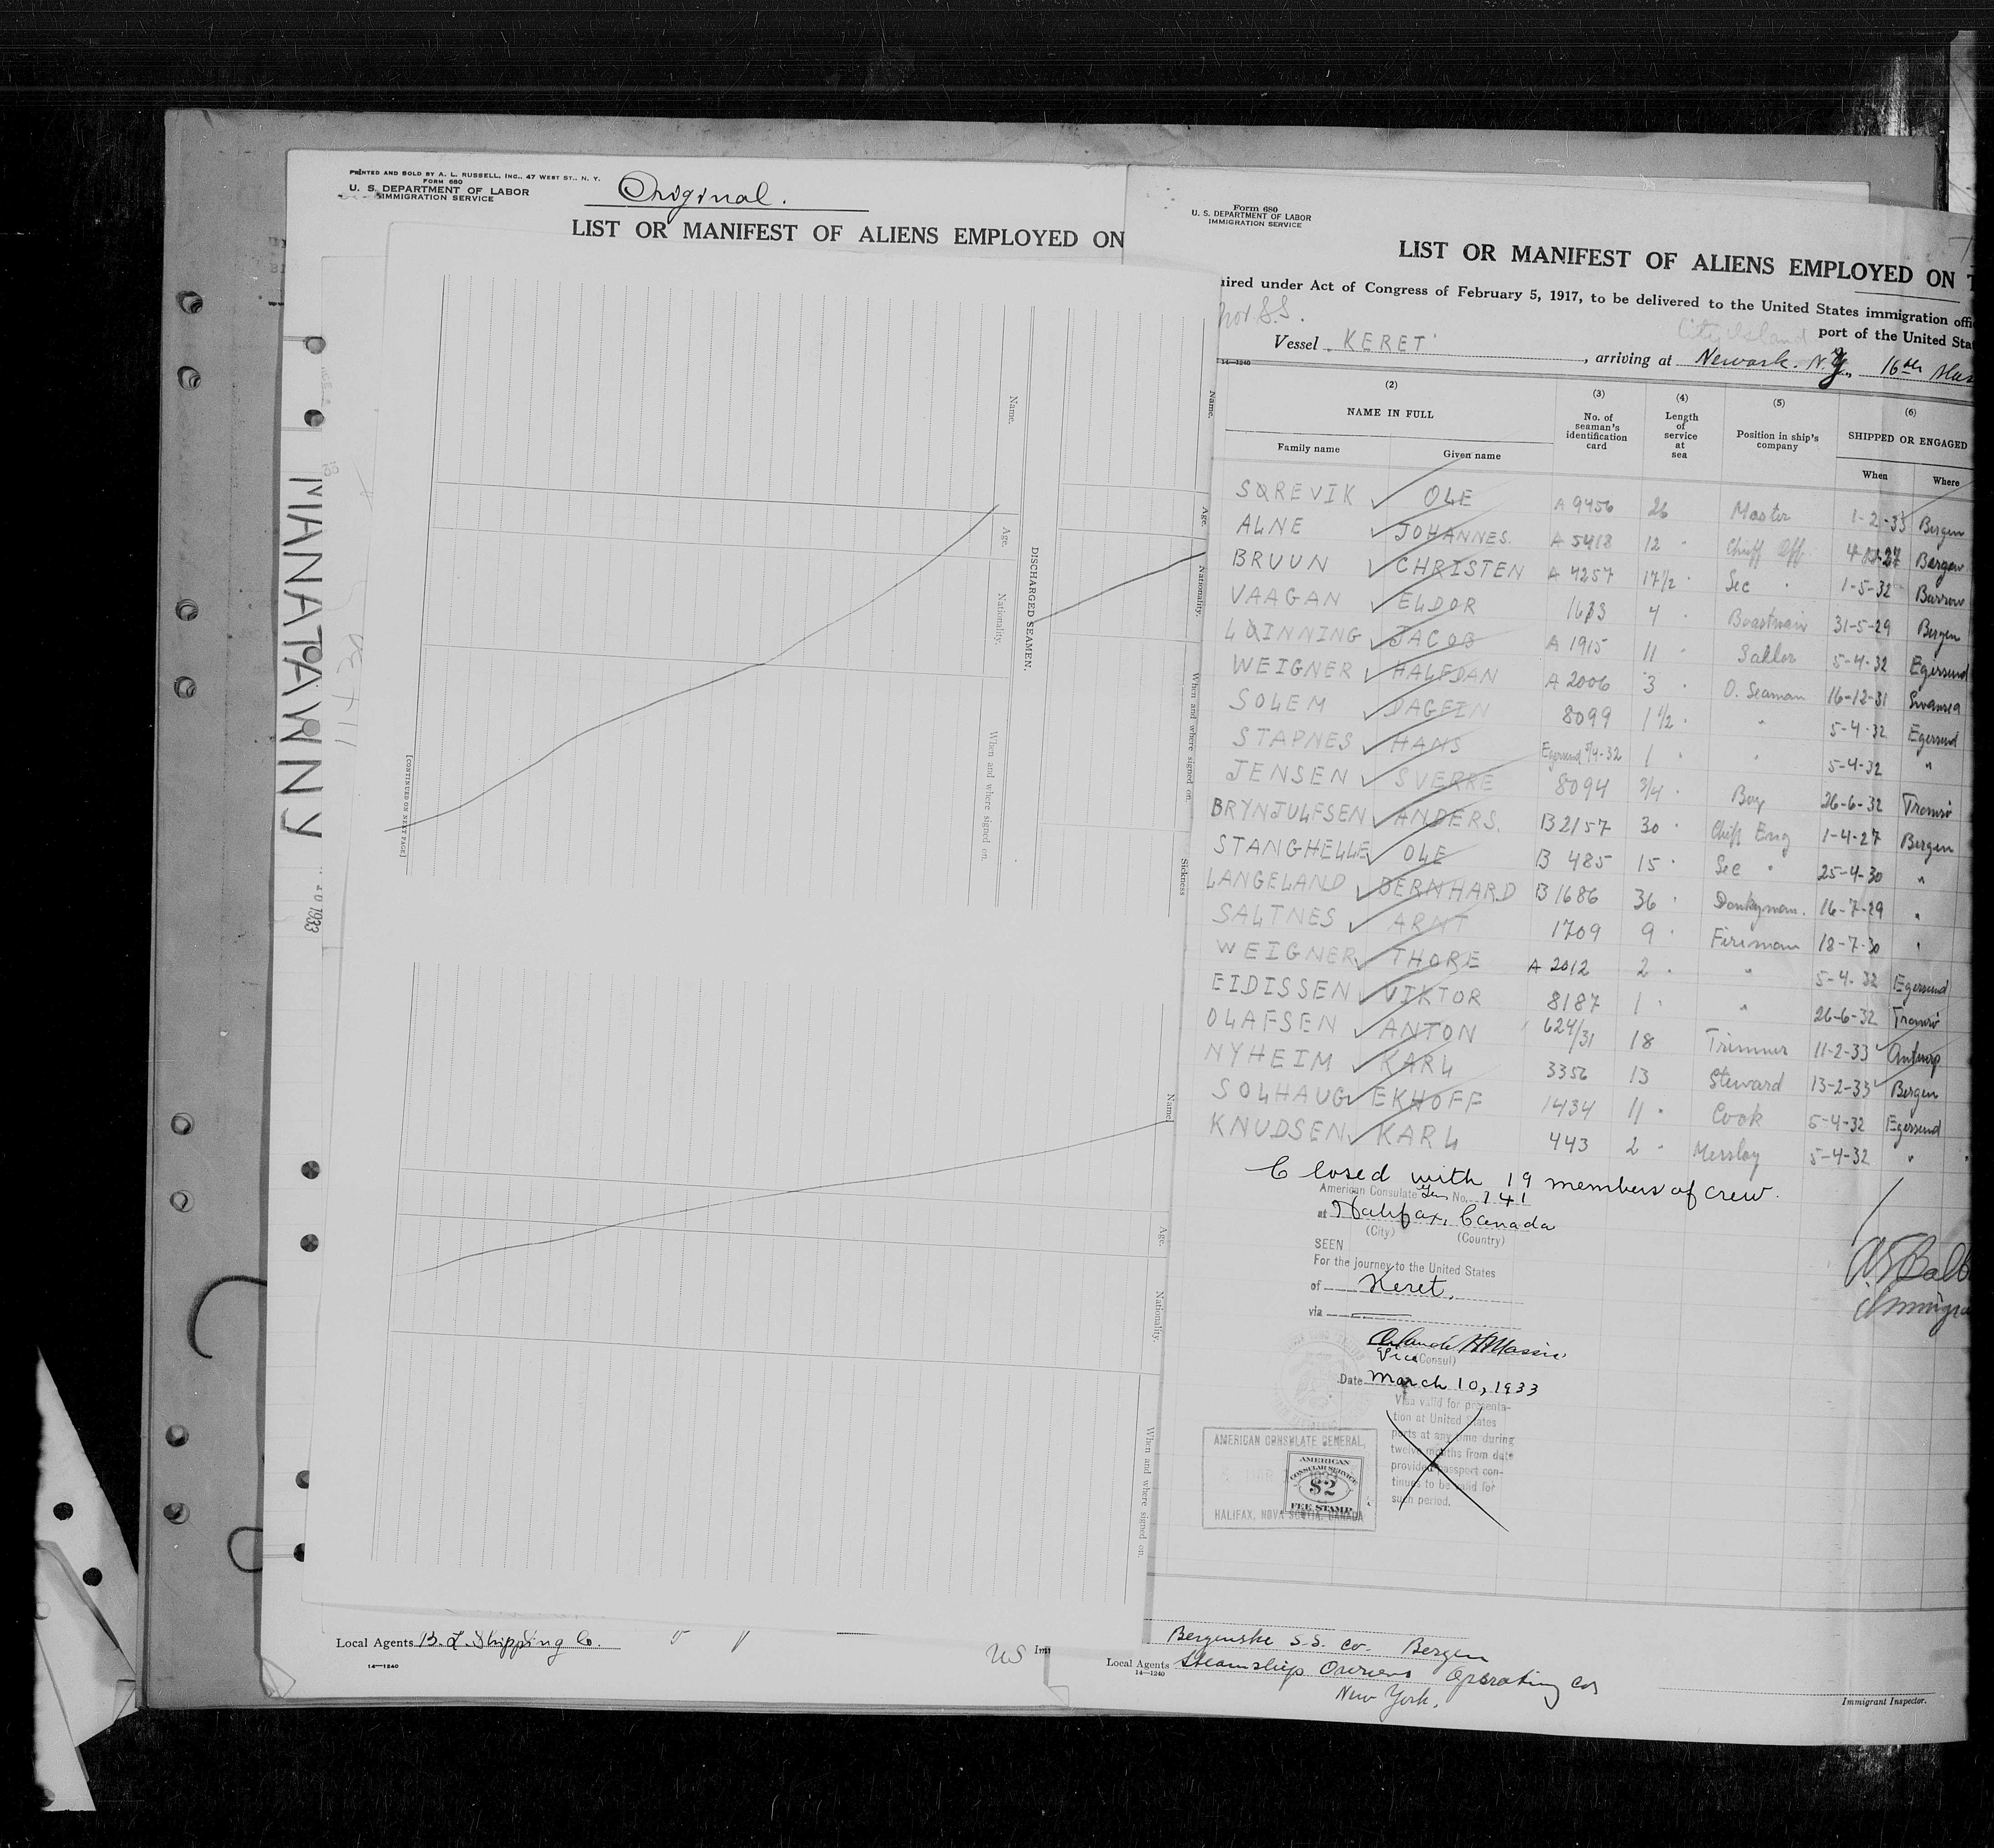 PRINTED AND SOLD BY A. L. RUSSELL, INC., 47 WEST ST., N. Y.
FORM 680
U. S. DEPARTMENT OF LABOR
IMMIGRATION SERVICE
Original.
LIST OR MANIFEST OF ALIENS EMPLOYED ON
MANATAWNY
1933
Name.
Age.
Nationality.
When and where signed on.
DISCHARGED SEAMEN.
[CONTINUED ON NEXT PAGE]
Name.
Age.
Nationality.
When and where signed on.
Sickness
Name
Age.
Nationality.
When and where signed on.
Local Agents B. L. Shipping Co.
14—1240
US Im
Form 680
U. S. DEPARTMENT OF LABOR
IMMIGRATION SERVICE
LIST OR MANIFEST OF ALIENS EMPLOYED ON T
uired under Act of Congress of February 5, 1917, to be delivered to the United States immigration offi
Nor S.S. City Island port of the United Sta
Vessel KERET , arriving at Newark. N.Y., 16th Mar
14—1240
(2) (3) (4) (5) (6)
NAME IN FULL No. of seaman's identification card Length of service at sea Position in ship's company SHIPPED OR ENGAGED
Family name Given name When Where
SØREVIK OLE A 9456 26 Master 1-2-33 Bergen
ALNE JOHANNES. A 5418 12 Chieff Off. Bergen
BRUUN CHRISTEN A 4257 17 1/2 Sec " 1-5-32 Barrow
VAAGAN ELDOR 4 Boastwain 31-5-29 Bergen
LØINNING JACOB A 1915 11 Saklor 5-4-32 Egersund
WEIGNER HALFDAN A 2006 3 O. Seaman 16-12-31 Swansea
SOLEM DAGFIN 8099 1 1/2 " 5-4-32 Egersund
STAPNES HANS Egersund 5/4-32 1 " 5-4-32 "
JENSEN SVERRE 8094 3/4 Boy 26-6-32 Tromsö
BRYNJULFSEN ANDERS. B 2157 30 Chiff Eng 1-4-27 Bergen
STANGHELLE OLE B 485 15 Sec " 25-4-30 "
LANGELAND BERNHARD B 1686 36 Donkyman. 16-7-29 "
SALTNES ARNT 1709 9 Fireman 18-7-30 "
WEIGNER THORE A 2012 2 " 5-4-32 Egersund
EIDISSEN VIKTOR 8187 1 " 26-6-32 Tromsö
OLAFSEN ANTON 624/31 18 Trimmer 11-2-33 Antwerp
NYHEIM KARL 3356 13 Steward 13-2-33 Bergen
SOLHAUG EKHOFF 1434 11 Cook 5-4-32 Egersund
KNUDSEN KARL 443 2 Messboy 5-4-32 "
Closed with 19 members of crew.
American Consulate Gen No. 141
at Halifax, Canada
(City) (Country)
SEEN
For the journey to the United States
of Keret,
via
Vice (Consul)
Date March 10, 1933
Visa valid for presenta-
tion at United States
ports at any time during
twelve months from date
provided passport con-
tinues to be valid for
such period.
AMERICAN CONSULATE GENERAL,
HALIFAX, NOVA SCOTIA, CANADA
AMERICAN
CONSULAR SERVICE
$2
FEE STAMP
Bergenske S.S. Co. Bergen
Local Agents Steamship Owners Operating Co
14—1240
New York.
Immigrant Inspector.